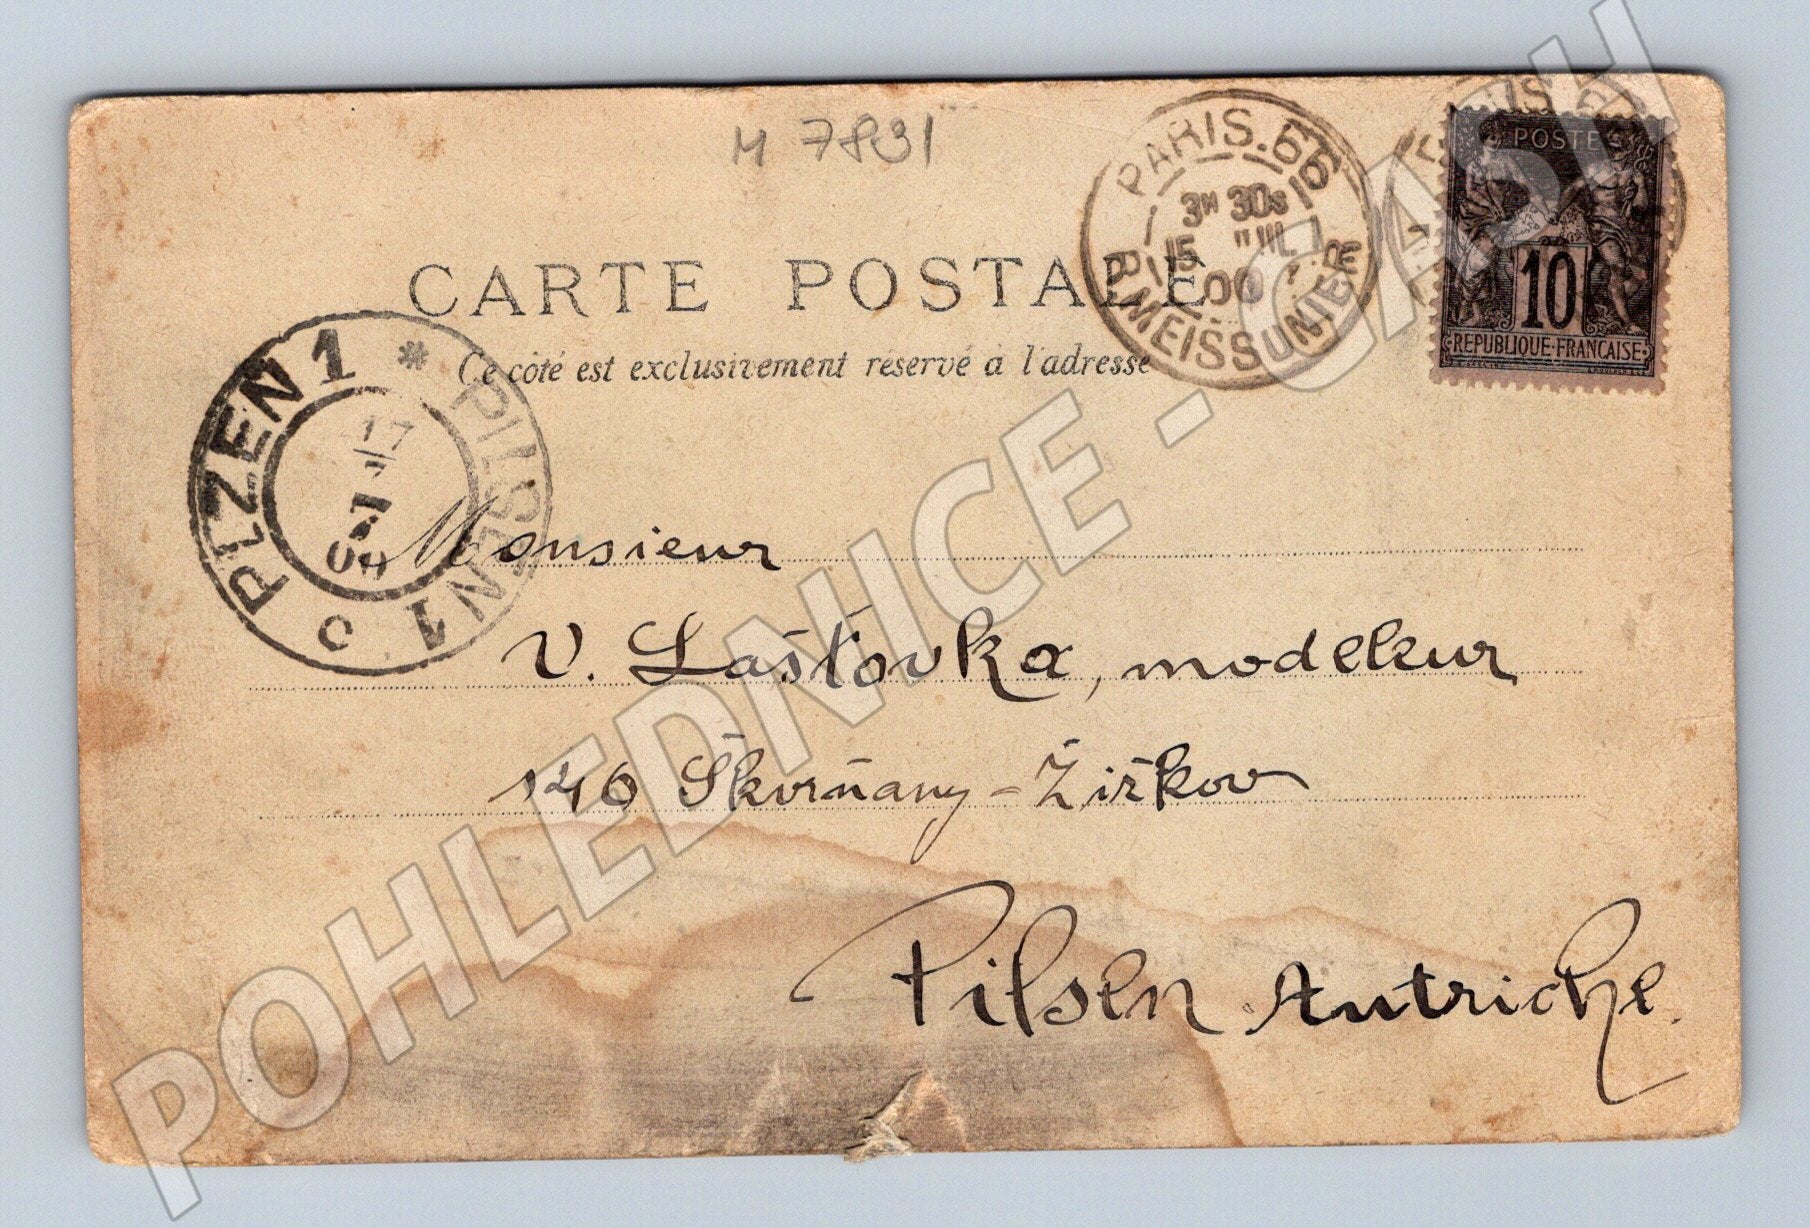 M 7831
PARIS.66
3H 30S
15 JUIL
00
R.MEISSONIER
POSTES
10
REPUBLIQUE FRANCAISE
CARTE POSTALE
Ce côté est exclusivement réservé à l'adresse
PLZEN 1 * PILSEN 1
17
7
00
Monsieur
V. Laštovka, modeleur
146 Škvrňany - Žižkov
Pilsen Autriche.
POHLEDNICE - CASH